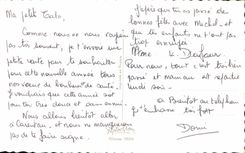 Ma petite
Comme nous ne nous voyons
pas très souvent, je t'envoie une
petite carte pour te souhaiter
pour cette nouvelle année tous
nos voeux de bonheur de santé.
Je voudrais que cette année soit
pour toi très douce et sans ennui.
Nous allons bientôt aller
à et nous ne manquerons
pas de te faire signe.
J'espère que tu as passé de
bonnes fêtes avec Michel et
que les enfants ne t'ont pas
trop
Mme
Pour nous, tout s'est bien
passé et maman est
lundi soir.
A Bientôt au téléphone
je t'embrasse bien fort